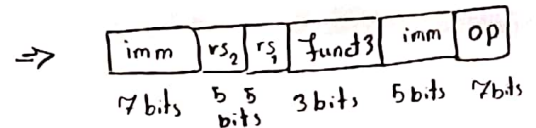 ⇒ imm rs2 rs1 funct3 imm op
7 bits 5 5 bits 3 bits 5 bits 7 bits